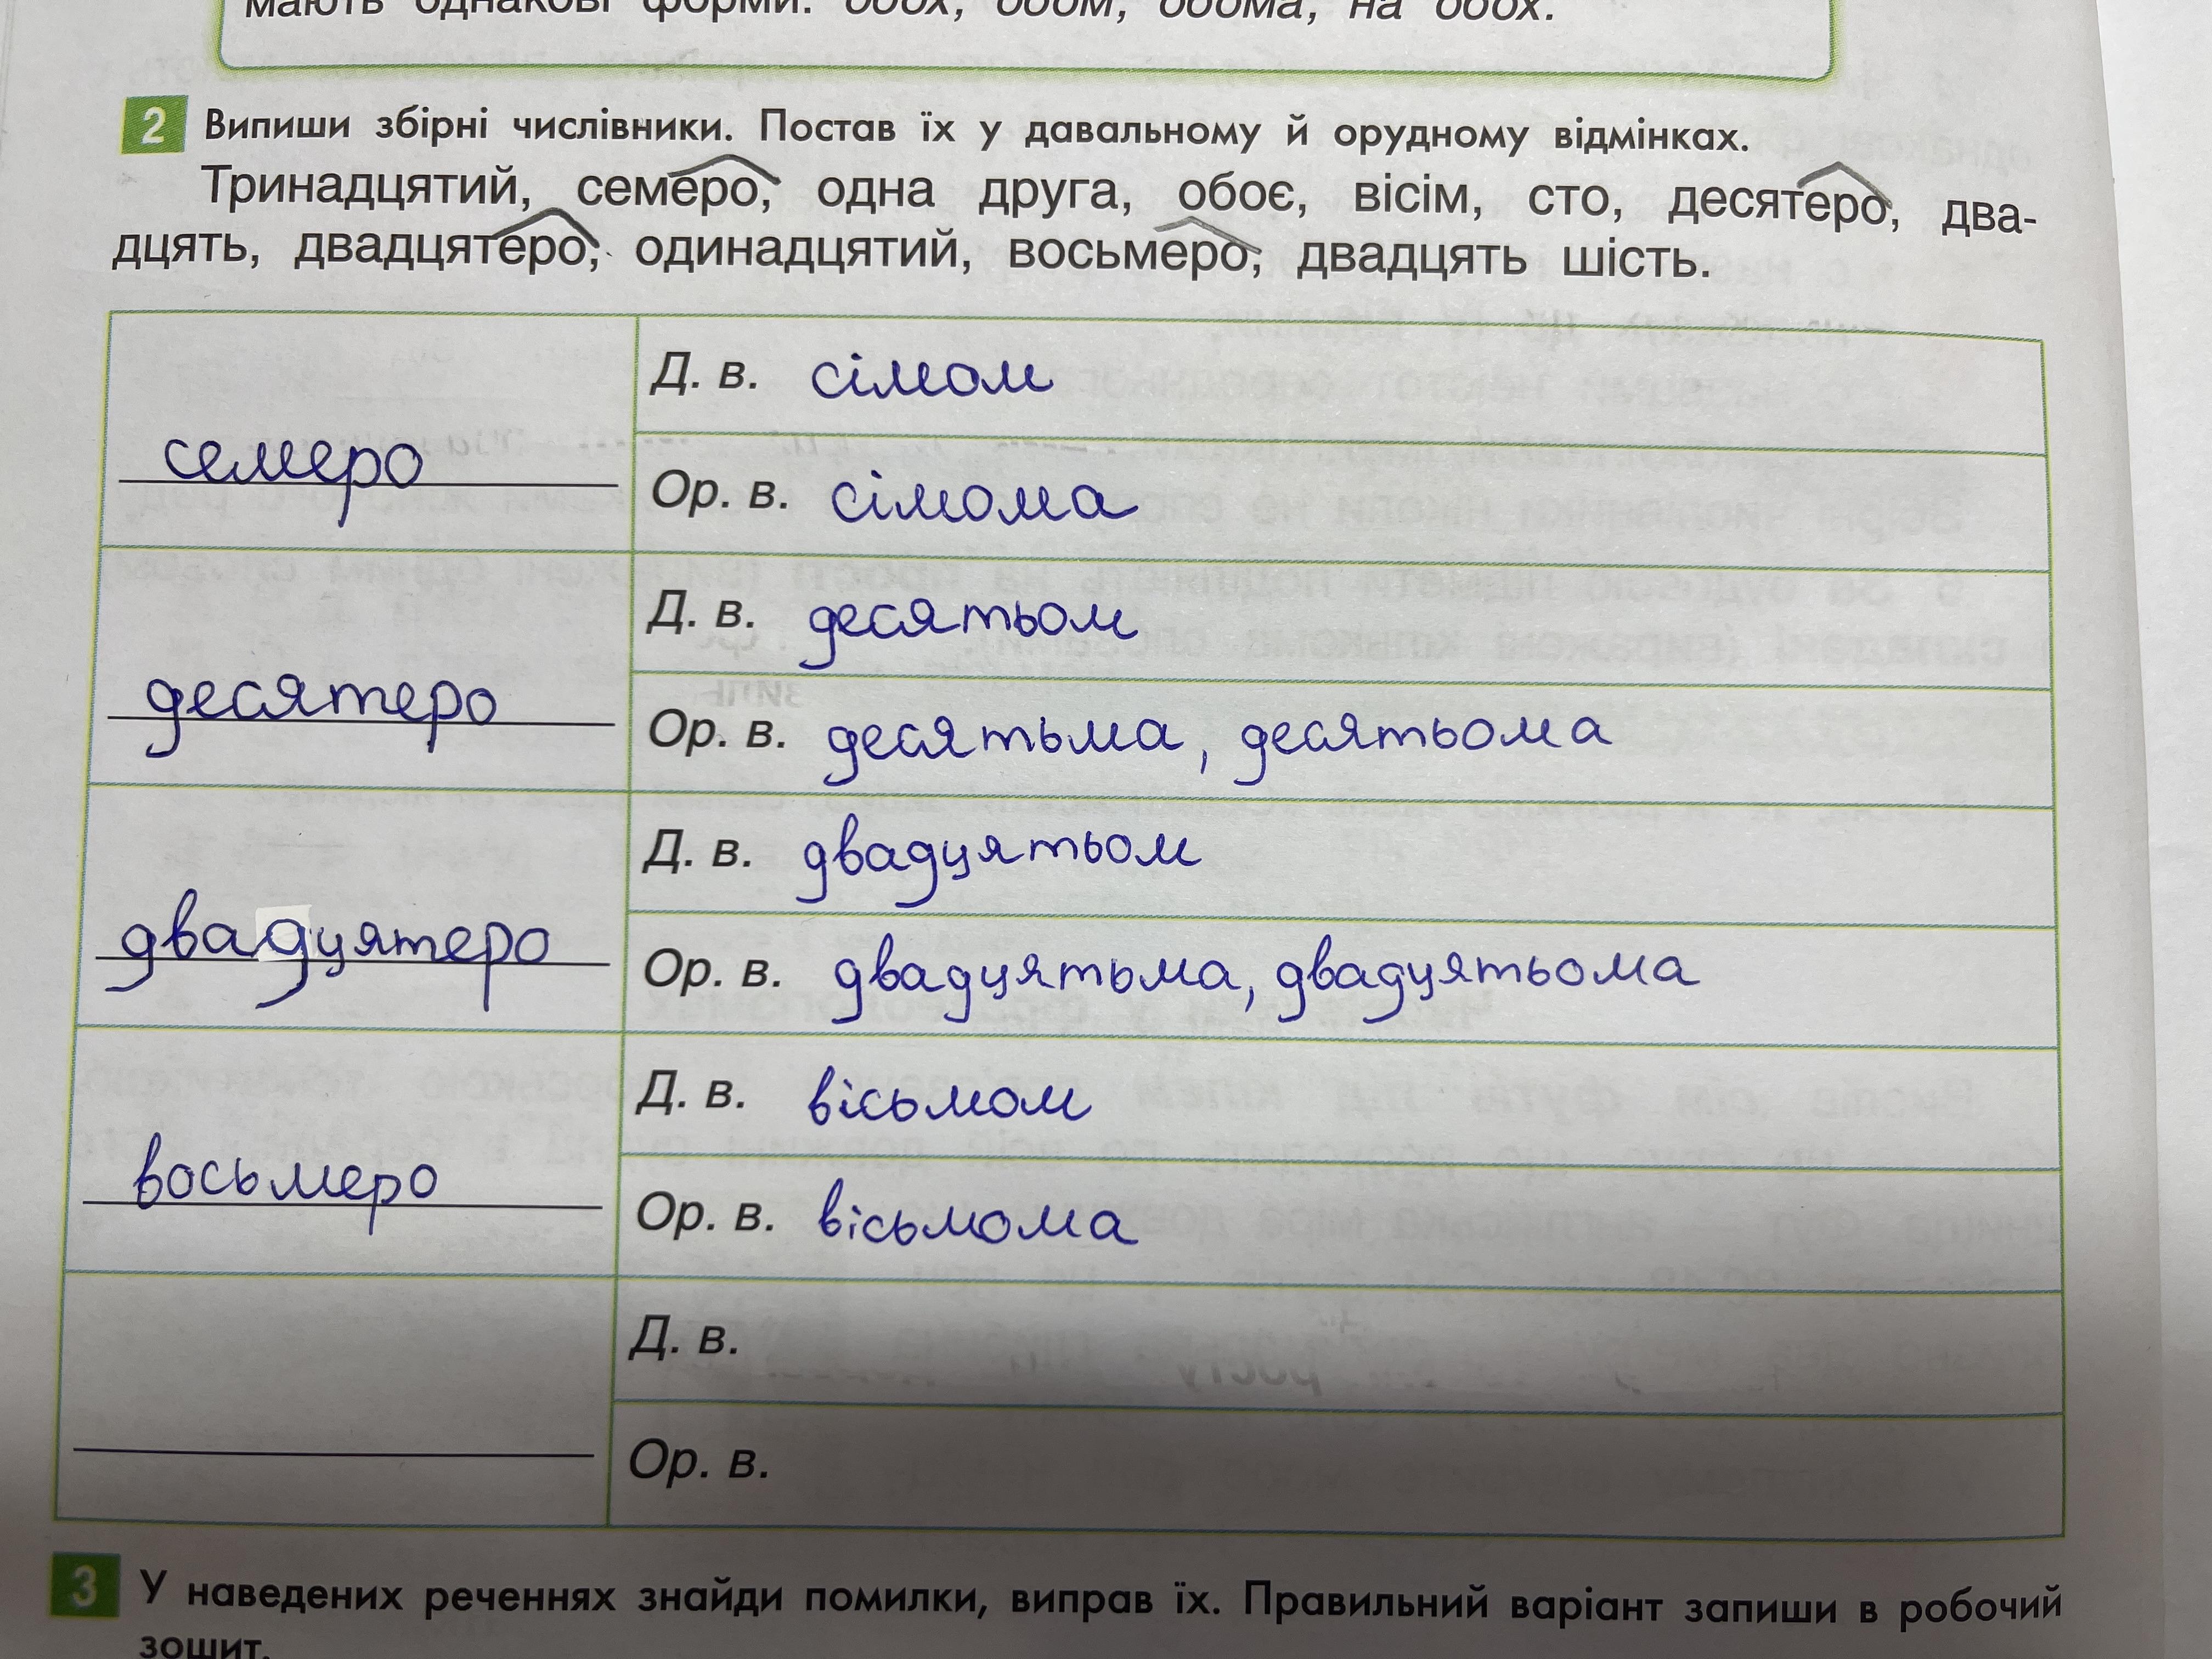 мають однакові форми: обох, обом, обома, на обох.
2 Випиши збірні числівники. Постав їх у давальному й орудному відмінках.
Тринадцятий, семеро, одна друга, обоє, вісім, сто, десятеро, два-
дцять, двадцятеро, одинадцятий, восьмеро, двадцять шість.
Д. в. сімом
семеро
Ор. в. сімома
Д. в. десятьом
десятеро
Ор. в. десятьма, десятьома
Д. в. двадцятьом
двадцятеро
Ор. в. двадцятьма, двадцятьома
Д. в. вісьмом
восьмеро
Ор. в. вісьмома
Д. в.
Ор. в.
3 У наведених реченнях знайди помилки, виправ їх. Правильний варіант запиши в робочий
зошит.